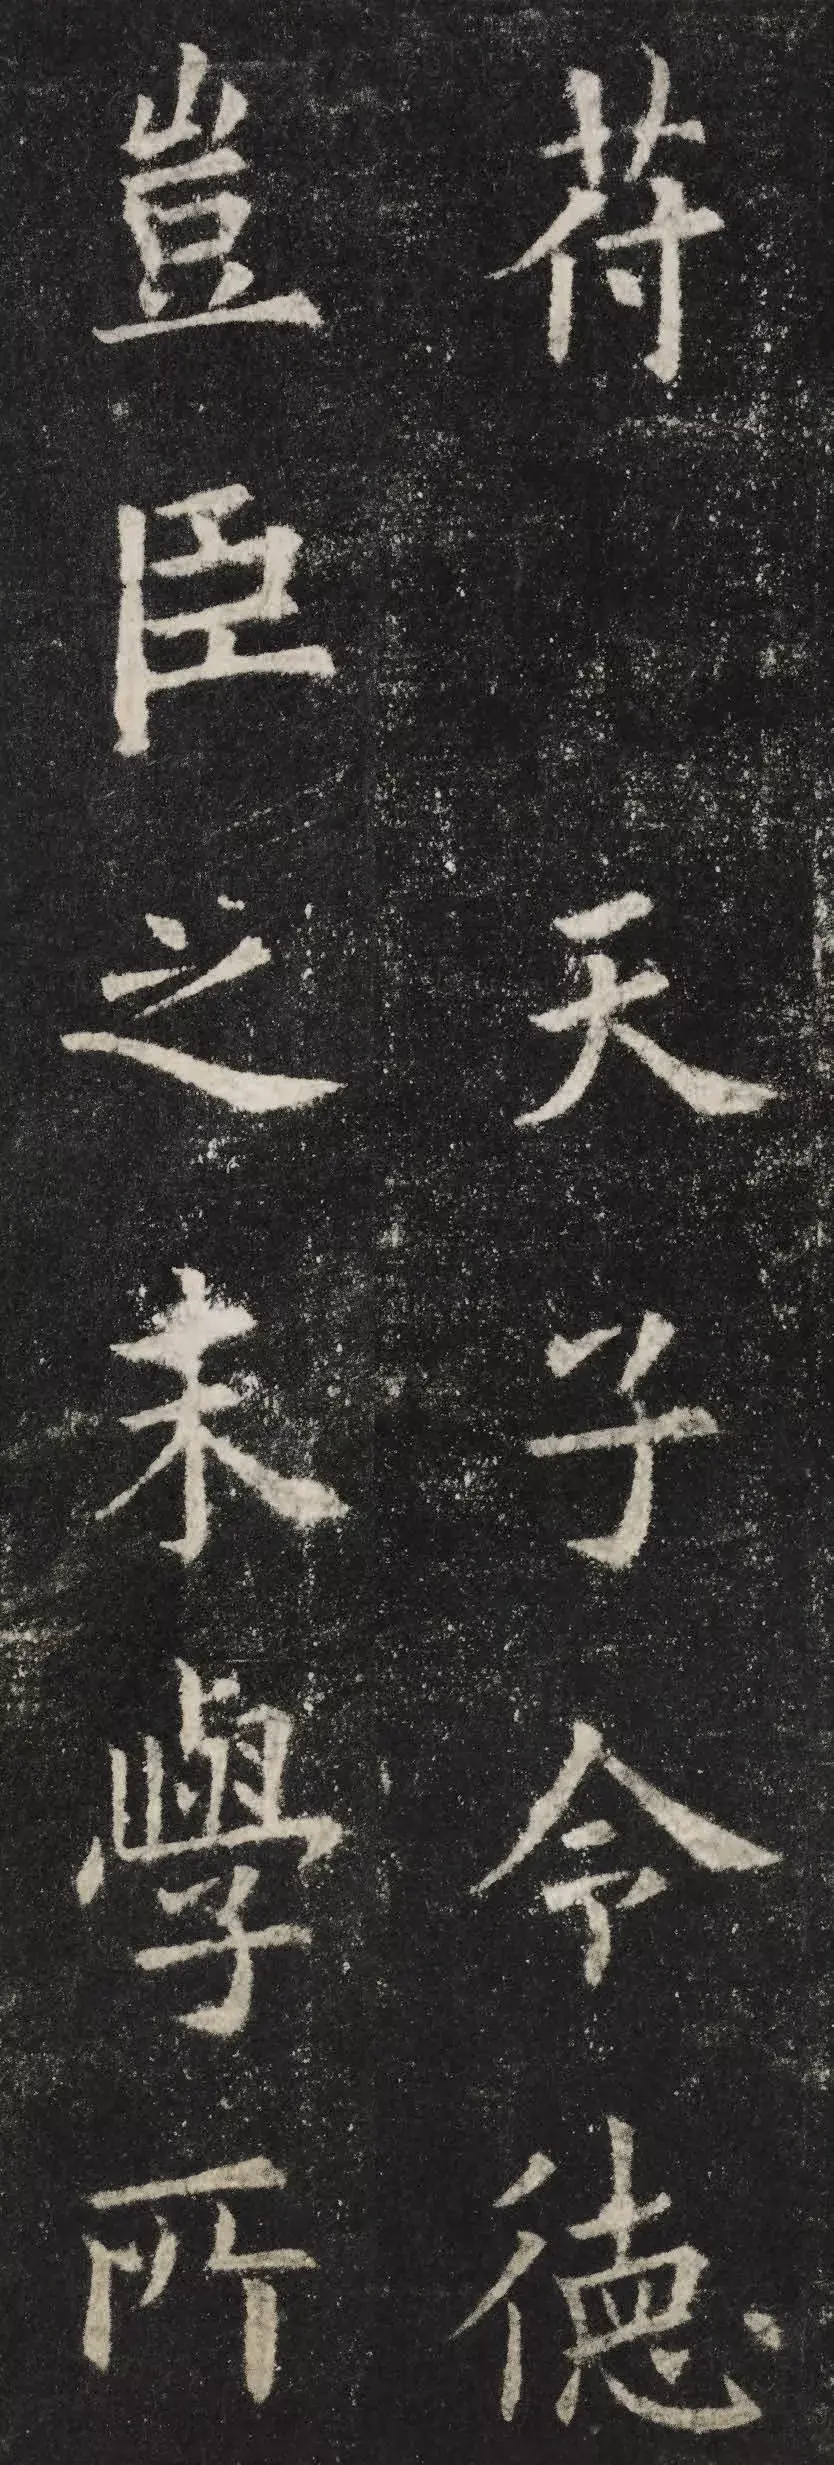 苻天子令德
豈臣之末學所